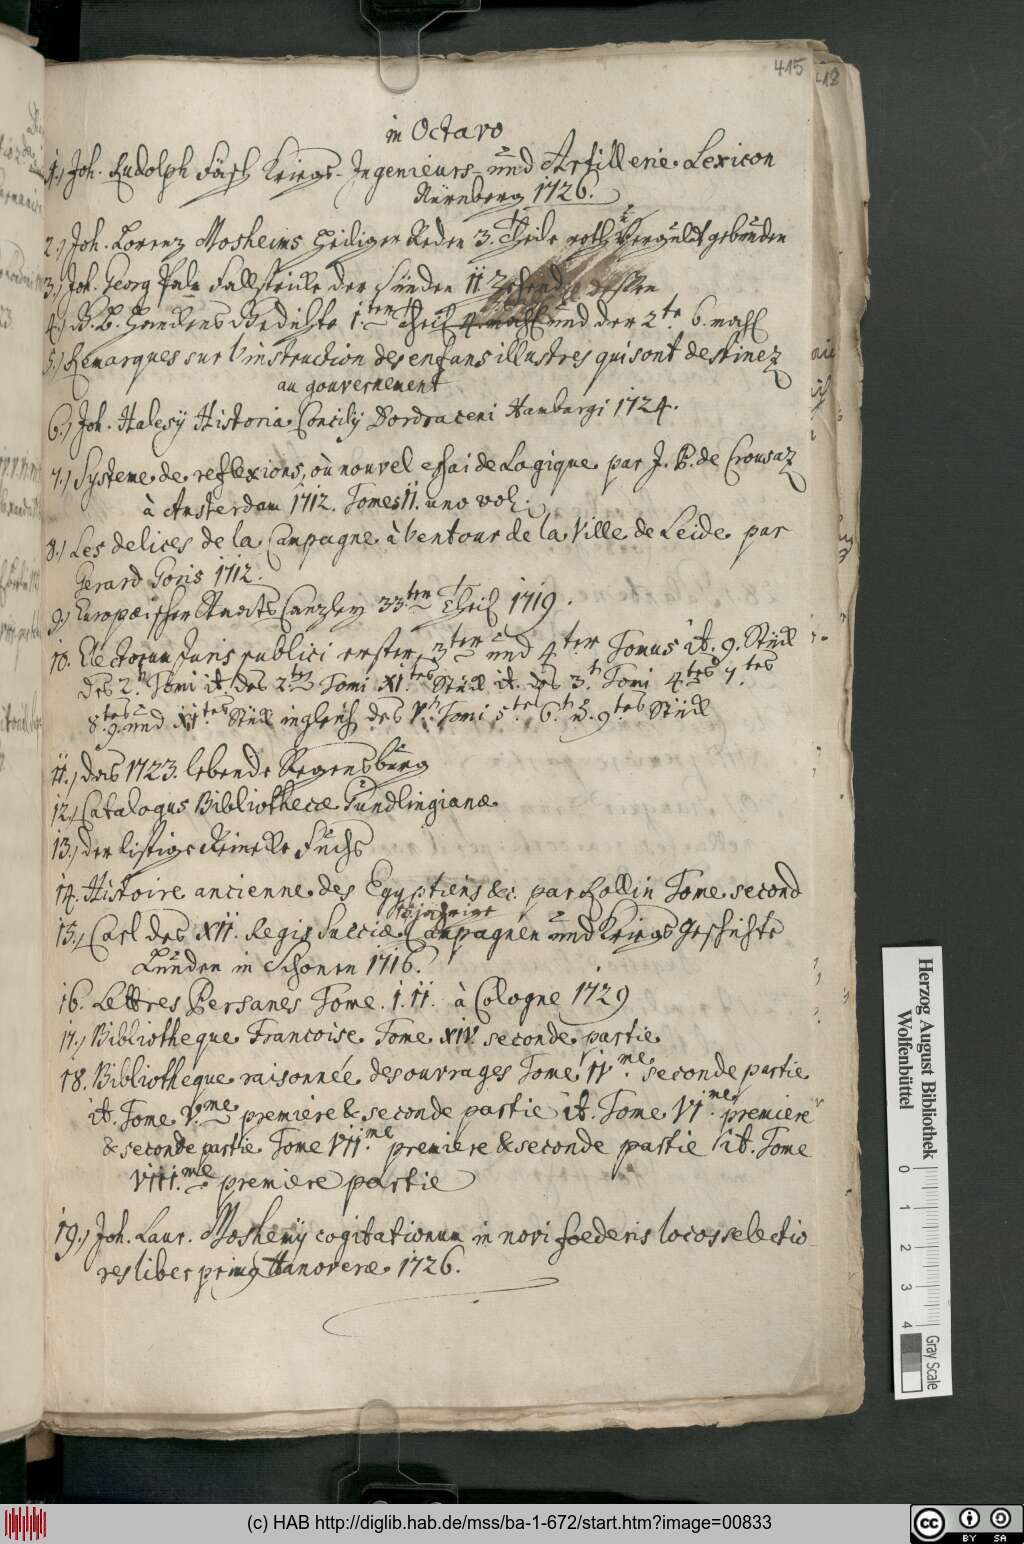 415
418
in Octavo
1.) Joh. Rudolph Fäsch Kriegs- Ingenieurs- und Artillerie Lexicon
Nürnberg 1726.
2.) Joh. Lorenz Mosheims Heilige Reden 3. Theile roth verguldt gebunden
3.) Joh. Georg Fallstricke der Sünden
4.) B. H. Gedichte 1.ten Theil 4. mahl und der 2te 6. mahl
5.) Remarques sur l'instruction des enfans illustres qui sont destinez
au gouvernement
6.) Joh. Halesij Historia Concilij Dordraceni Hamburgi 1724.
7.) Systeme de reflexions, où nouvel essai de Logique par J. P. de Crousaz
à Amsterdam 1712. Tomes II. uno vol.
8.) Les delices de la Campagne à l'entour de la Ville de Leide par
Gerard Goris 1712.
9.) Europæischer Staats Canzley 33ten Theil 1719.
10. Electorum Juris publici erster, 3ter und 4ter Tomus it. 9. Stück
des 2.ten Tomi it. des 2ten Tomi XI.tes Stück it. des 3.ten Tomi 4.tes 7.tes
8.tes 9. und XI.tes Stück ingleich des V.ten Tomi 5.tes 6.t u. 9.tes Stück
11.) das 1723. lebende Regensburg
12.) Catalogus Bibliothecæ Gundlingianæ
13.) der listige Reineke Fuchs
14. Histoire ancienne des Egyptiens &c. par Rollin Tome second
15.) Carl des XII. Regis Sueciæ Campagnen und Kriegs Geschichte
Lunden in Schonen 1716.
16. Lettres Persanes Tome. I. II. à Cologne 1729
17.) Bibliotheque Francoise Tome XIV. seconde partie
18. Bibliotheque raisonnée des ouvrages Tome IV.me seconde partie
it. Tome V.me premiere & seconde partie it. Tome VI.me premiere
& seconde partie Tome VII.me premiere & seconde partie it. Tome
VIII.me premiere partie
19.) Joh. Laur. Moshemij cogitationum in novi foederis locos selectio-
res liber primus Hanoveræ 1726.
Herzog August Bibliothek
Wolfenbüttel
0 1 2 3 4
Gray Scale
(c) HAB http://diglib.hab.de/mss/ba-1-672/start.htm?image=00833
cc BY SA